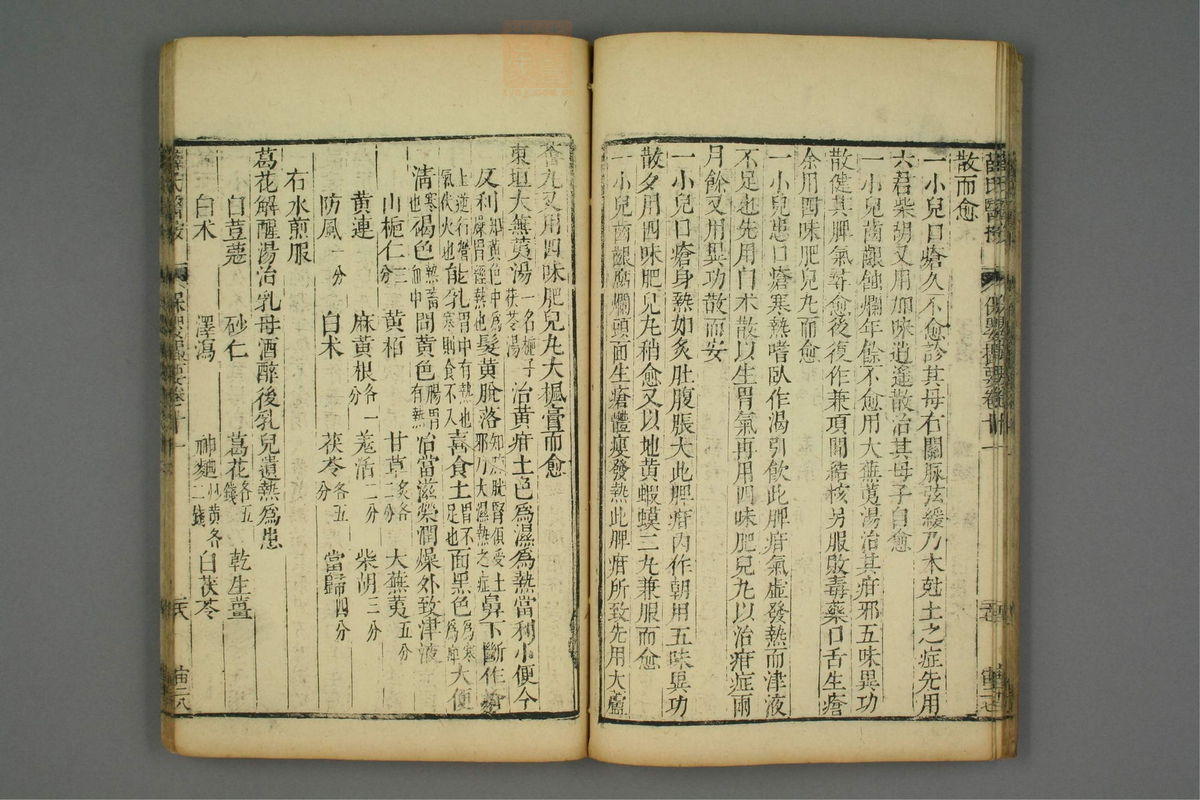 薛氏醫按
保嬰撮要卷十一
散而愈
一小兒口瘡久不愈診其母右關脉弦緩乃木尅土之症先用
六君柴胡又用加味逍遙散治其母子自愈
一小兒齒齦蝕爛年餘不愈用大蕪荑湯治其疳邪五味異功
散健其脾氣尋愈後復作兼項間結核另服敗毒藥口舌生瘡
余用四味肥兒丸而愈
一小兒患口瘡寒熱嗜臥作渴引飲此脾疳氣虛發熱而津液
不足也先用白术散以生胃氣再用四味肥兒丸以治疳症兩
月餘又用異功散而安
一小兒口瘡身熱如炙肚腹脹大此脾疳內作朝用五味異功
散夕用四味肥兒丸稍愈又以地黄蝦蟆二丸兼服而愈
一小兒齒齦腐爛頭面生瘡體瘦發熱此脾疳所致先用大蘆
薈丸又用四味肥兒丸大楓膏而愈
東垣大蕪荑湯一名梔子茯苓湯治黄疳土色為濕為熱當利小便今
反利知黄色中為燥胃經熱也髮黄脫落知膀胱腎俱受土邪乃大濕熱之症鼻下斷作瘡
上逆行營氣伏火也能乳胃中有熱也寒則食不入喜食土胃不足也面黑色為寒為痺大便
清寒也褐色熱蓄血中間黄色腸胃有熱治當滋榮潤燥外致津液
山梔仁三分 黄栢 甘草炙各二分 大蕪荑五分
黄連 麻黄根各一分 羗活二分 柴胡三分
防風一分 白术 茯苓各五分 當歸四分
右水煎服
葛花解醒湯治乳母酒醉後乳兒遺熱為患
白荳蔲 砂仁 葛花各五錢 乾生薑
白术 澤瀉 神麯炒黄各二錢 白茯苓
薛氏醫按
保嬰撮要卷十一